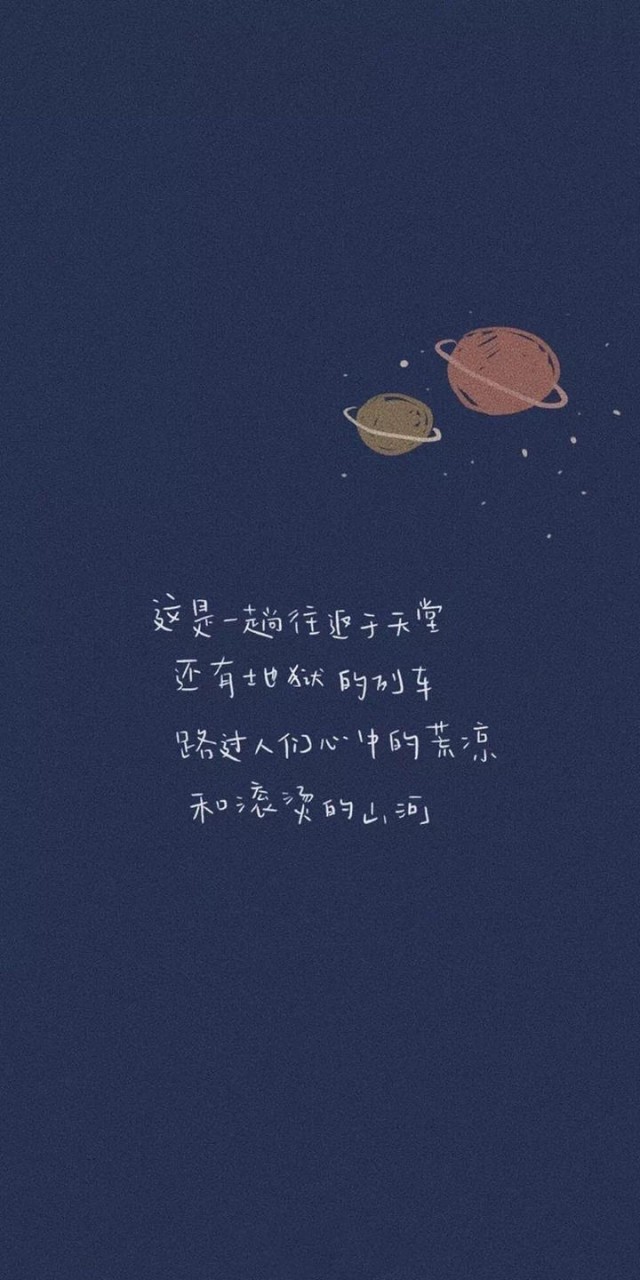 这是一趟往返于天堂
还有地狱的列车
路过人们心中的荒凉
和滚烫的山河